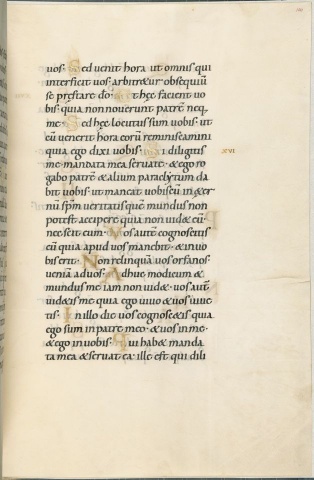 vos· Sed uenit hora ut omnis qui
interficit uos· arbitr&ur obsequiũ
se prestare dõ· Sthęc facient uo
bis· quia non nouerunt patrẽ neq,
me· Sed hęc locutus sum uobis· ut
cũ uenerit hora eorũ reminiscamini
quia ego dixi uobis· Si diligitis
me· mandata mea seruate· & ego ro
gabo patrẽ & alium paraclytum da
bit uobis· ut maneat uobiscũ in &er
nũ· spm̃ ueritatis quẽ mundus non
potest accipere quia non uid& eũ·
nec scit eum· Vos autẽ cognoscetis
eũ quia apud uos manebit· & in uo
bis erit· Non relinquã uos orfanos·
veniã ad uos· Adhuc modicum &
mundus me iam non uid&· uos aut̃
uid&is me quia ego uiuo & uos uiue
tis· In illo die uos cognosc&is quia
ego sum in patre meo· & uos in me·
& ego in uobis· Qui hab& manda
ta mea & seruat ea· ille est qui dili
xvi